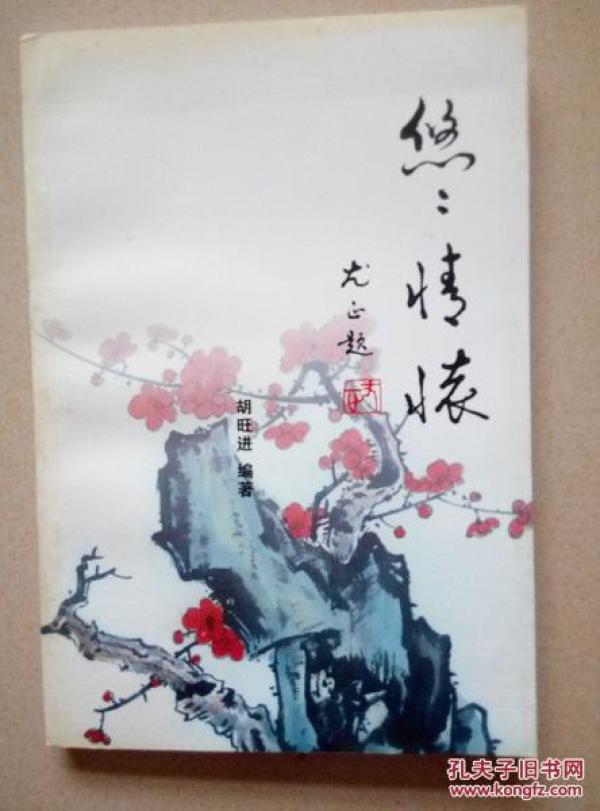 悠〻情怀
尤正题
胡旺进 编著
孔夫子旧书网
www.kongfz.com